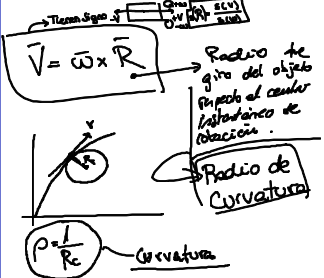 Tienen signo
V̄ = ω̄ × R̄
Radio de
giro del objeto
respecto al centro
instantáneo de
rotación.
V
Rc
Radio de
Curvatura
ρ = 1/Rc
Curvatura